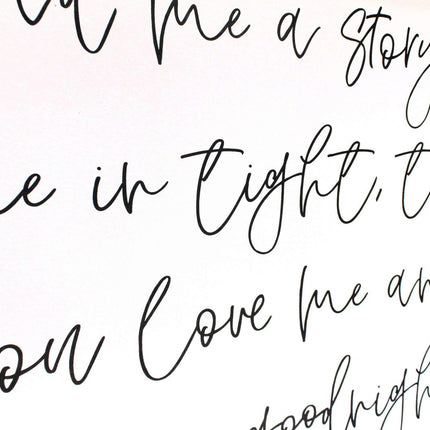 ad me a story
e in tight, t
ou love me an
goodnigh